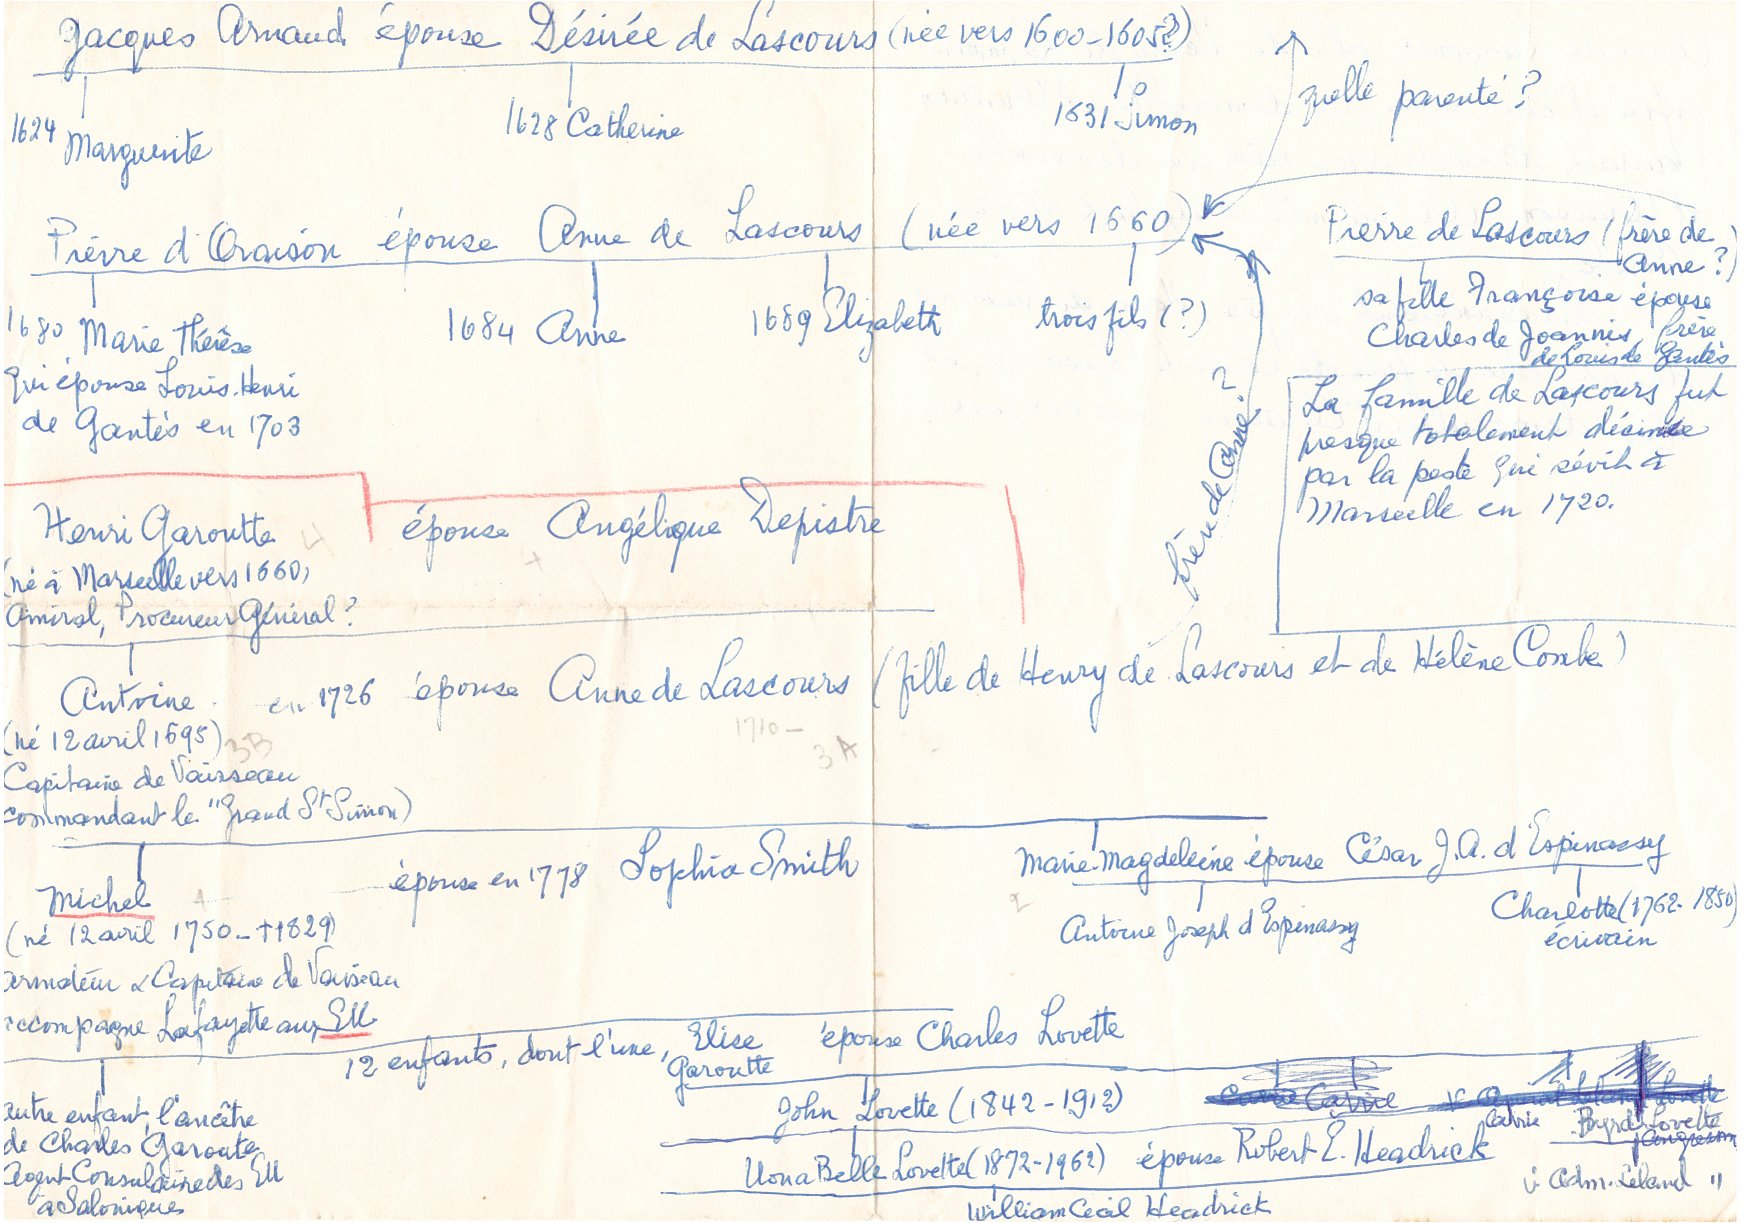 Jacques Arnaud épouse Désirée de Lascours (née vers 1600-1605?)
quelle parenté?
1624 Marguerite
1628 Catherine
1631 Simon
Pierre d'Oraison épouse Anne de Lascours (née vers 1660)
Pierre de Lascours (frère de Anne?)
sa fille Françoise épouse
Charles de Joannis, frère
de Louis de Gantès
1680 Marie Thérèse
qui épouse Louis-Henri
de Gantès en 1703
1684 Anne
1689 Elizabeth
trois fils (?)
La famille de Lascours fut
presque totalement décimée
par la peste qui sévit à
Marseille en 1720.
frère de Anne?
Henri Garoutte épouse Angélique Depistre
(né à Marseille vers 1660,
Amiral, Procureur Général?
4
+
Antoine en 1726 épouse Anne de Lascours (fille de Henry de Lascours et de Hélène Combe)
(né 12 avril 1695)
3B
1710-
3A
Capitaine de Vaisseau
commandant le "Grand St Simon)
Michel épouse en 1778 Sophia Smith
(né 12 avril 1750-†1829)
armateur & Capitaine de Vaisseau
accompagne Lafayette aux EU
Marie-Magdeleine épouse César J.A. d'Espinassy
2
Antoine Joseph d'Espinassy
Charlotte (1762-1850)
écrivain
12 enfants, dont l'une, Elise Garoutte épouse Charles Lovette
autre enfant, l'ancêtre
de Charles Garoute
Agent Consulaire des EU
à Salonique
John Lovette (1842-1912)
Carrie
Carrie
Byrd Lovette
Congressm
Uona Belle Lovette (1872-1962) épouse Robert E. Headrick
Adm. Leland "
William Cecil Headrick